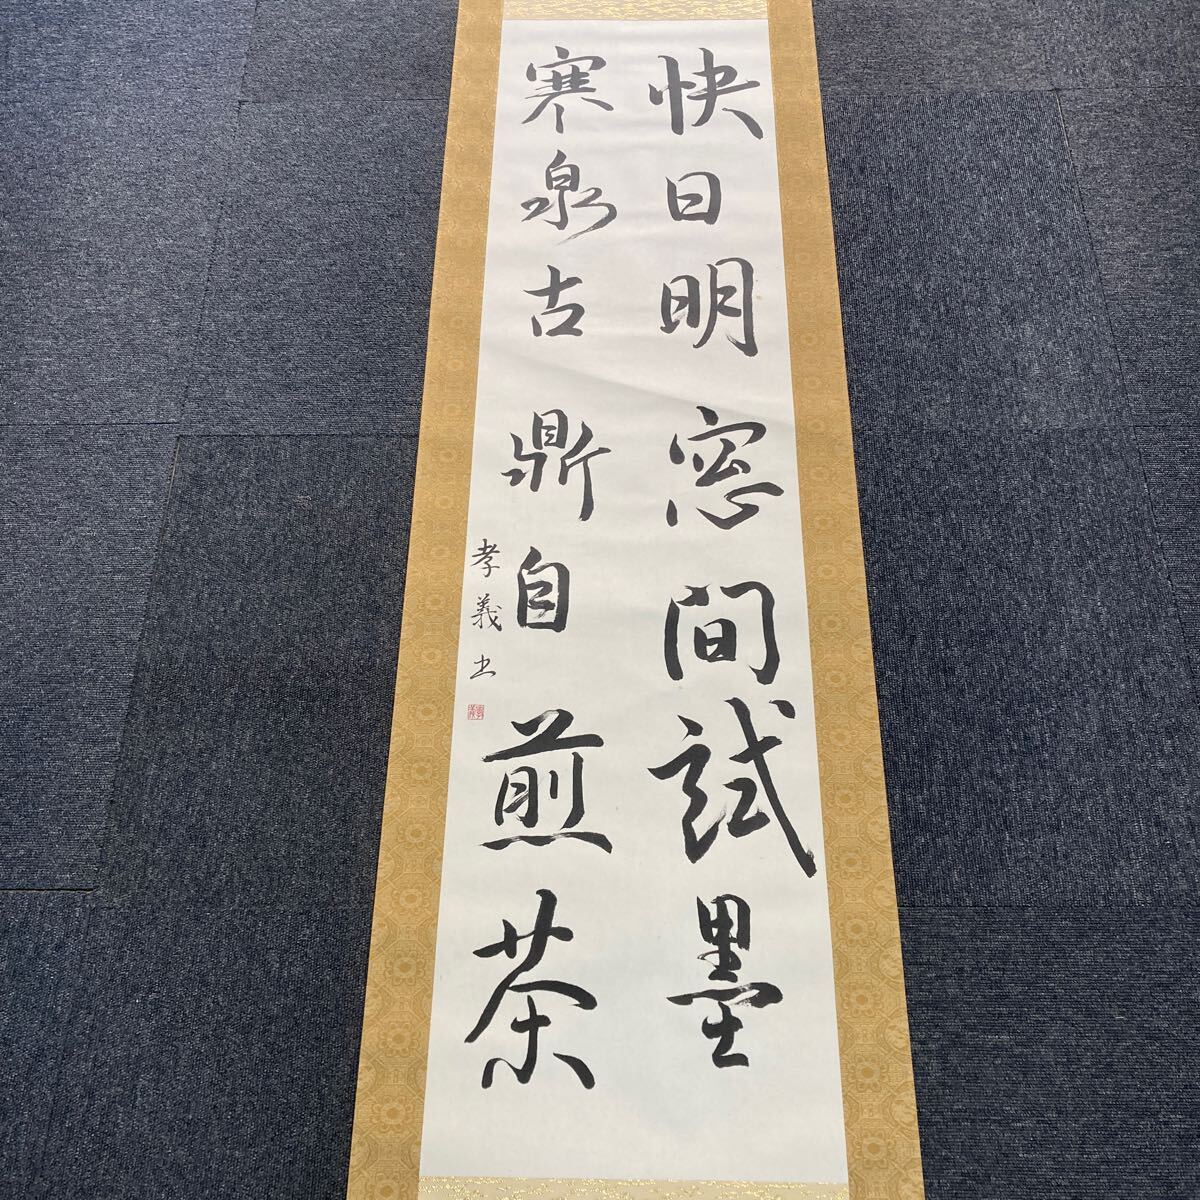 快日明窓間試墨
寒泉古鼎自煎茶
孝義书